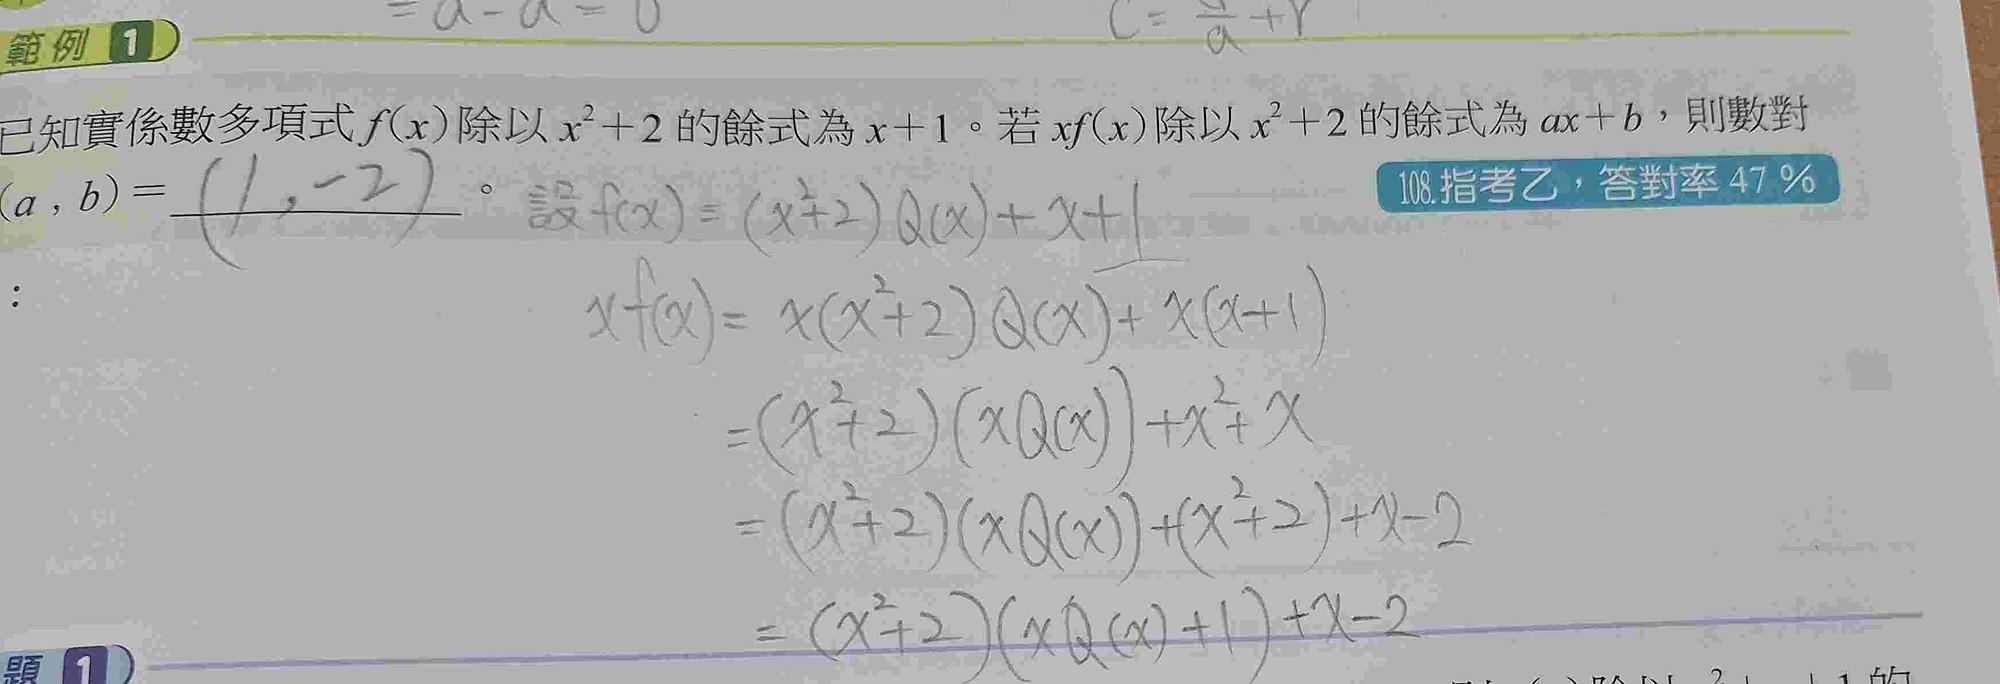 = a - a = 0
範例 1
已知實係數多項式 f(x) 除以 x²+2 的餘式為 x+1。若 xf(x) 除以 x²+2 的餘式為 ax+b，則數對
(a , b) = (1, -2)。
108.指考乙，答對率 47 %
設 f(x) = (x²+2) Q(x) + x+1
:
xf(x) = x(x²+2) Q(x) + x(x+1)
= (x²+2)(xQ(x)) + x²+x
= (x²+2)(xQ(x)) + (x²+2) + x-2
= (x²+2)(xQ(x)+1) + x-2
題 1